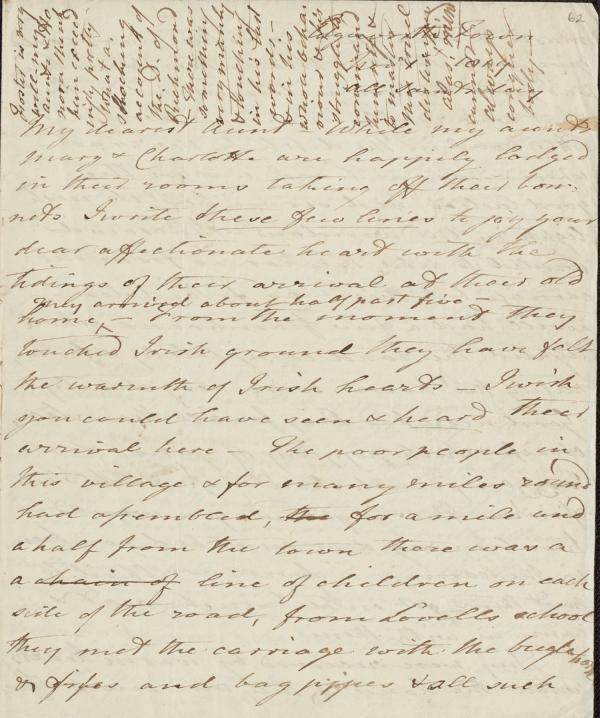 62
Edgeworths Town
All Saints day
My dearest Aunt While my aunts
Mary & Charlotte are happily lodged
in their rooms taking off their bon-
nets I write these few lines to joy your
dear affectionate heart with the
tidings of their arrival at their old
they arrived about half past five -
home - From the moment they
touched Irish ground they have felt
the warmth of Irish hearts - I wish
you could have seen & heard their
arrival here - The poor people in
this village & for many miles round
had assembled, the for a mile and
a half from the town there was a
a chain of line of children on each
side of the road, from Lovells school
they met the carriage with the bugle horn
& fifes and bag pipes & all such
very
well my
aunts
nora
been
pretty
What a
shocking
account of
the D. of
Richmond
there was
something
very manly
& touching
in his last
words
& in his
whole